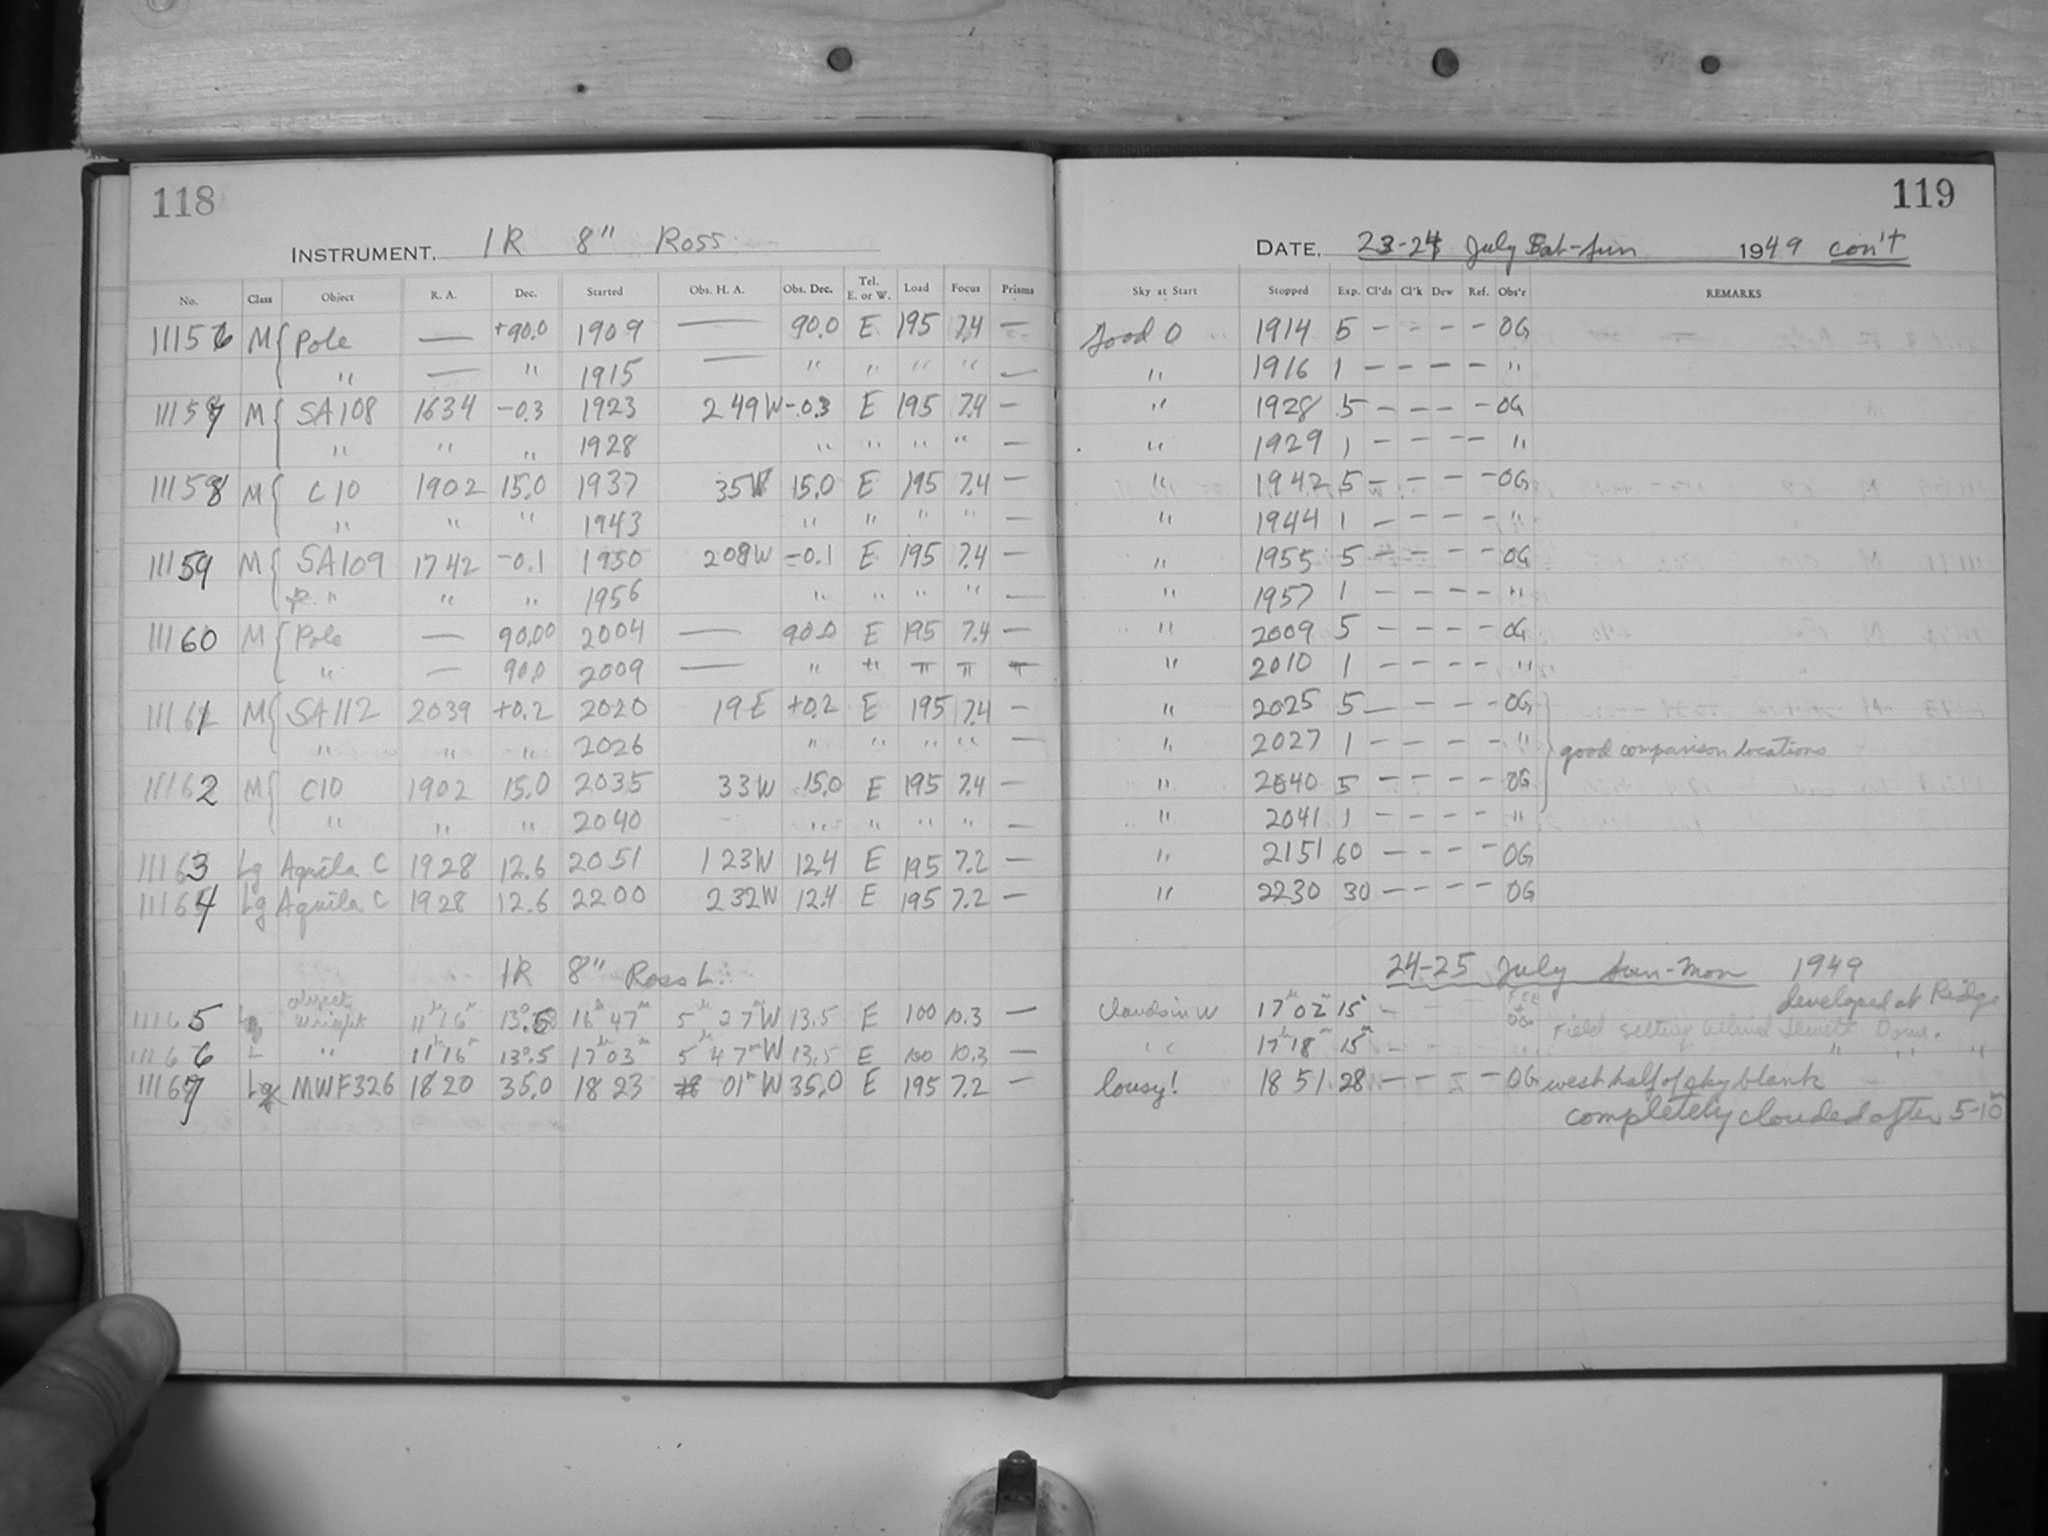 118
INSTRUMENT. IR 8" Ross
No. Class Object R. A. Dec. Started Obs. H. A. Obs. Dec. Tel. E. or W. Load Focus Prisms
11156 M { Pole — +90.0 1909 — 90.0 E 195 7.4 —
" — " 1915 — " " " " —
11157 M { SA108 1634 -0.3 1923 249W -0.3 E 195 7.4 —
" " " 1928 " " " " —
11158 M { C10 1902 15.0 1937 35W 15.0 E 195 7.4 —
" " " 1943 " " " " —
11159 M { SA109 1742 -0.1 1950 208W -0.1 E 195 7.4 —
" " " 1956 " " " " —
11160 M { Pole — 90.00 2004 — 90.0 E 195 7.4 —
" — 90.0 2009 — " " " " "
11161 M { SA112 2039 +0.2 2020 19E +0.2 E 195 7.4 —
" " " 2026 " " " " —
11162 M { C10 1902 15.0 2035 33W 15.0 E 195 7.4 —
" " " 2040 " " " " —
11163 Lg Aquila C 1928 12.6 2051 123W 12.4 E 195 7.2 —
11164 Lg Aquila C 1928 12.6 2200 232W 12.4 E 195 7.2 —
IR 8" Ross L.
11165 object Wright 11h16m 13°.5 16h47m 5h27mW 13.5 E 100 10.3 —
11166 L " 11h16m 13°.5 17h03m 5h47mW 13.5 E 100 10.3 —
11167 Lg MWF326 1820 35.0 1823 01mW 35.0 E 195 7.2 —
119
DATE. 23-24 July Sat-Sun 1949 con't
Sky at Start Stopped Exp. Cl'ds Cl'k Dew Ref. Obs'r REMARKS
Good 0 1914 5 — — — — OG
" 1916 1 — — — — "
" 1928 5 — — — — OG
" 1929 1 — — — — "
" 1942 5 — — — — OG
" 1944 1 — — — — "
" 1955 5 — — — — OG
" 1957 1 — — — — "
" 2009 5 — — — — OG
" 2010 1 — — — — "
" 2025 5 — — — — OG
" 2027 1 — — — — " } good comparison locations
" 2040 5 — — — — OG
" 2041 1 — — — — "
" 2151 60 — — — — OG
" 2230 30 — — — — OG
24-25 July Sun-Mon 1949
developed at Ridge
Clouds in W 17h02m 15m — — — OG Field setting behind Jewett Dome.
" 17h18m 15m — " " "
lousy! 1851 28 — — — — OG west half of sky blank
completely clouded after 5-10m